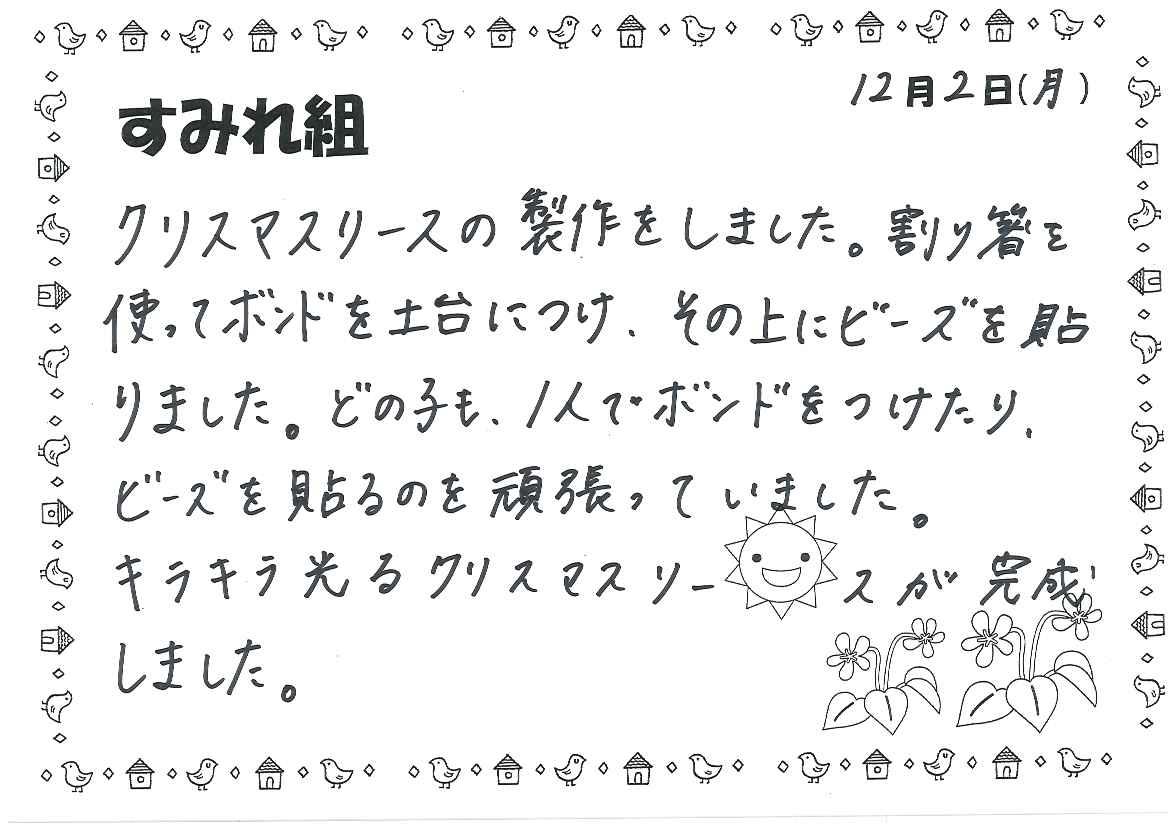 12月2日(月)
すみれ組
クリスマスリースの製作をしました。割り箸を
使ってボンドを土台につけ、その上にビーズを貼
りました。どの子も、1人でボンドをつけたり、
ビーズを貼るのを頑張っていました。
キラキラ光るクリスマスリースが完成
しました。